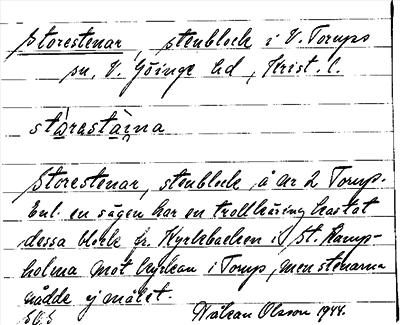 Storestenar, stenblock i V. Torups
sn, V. Göinge hd, Krist. l.
stòrastàina
Storestenar, stenblock, å nr 2 Torup.
Enl. en sägen har en trollkäring kastat
dessa block fr. Kyrkbacken i St. Ramp-
holma mot kyrkan i Torup, men stenarna
nådde ej målet.
Håkan Olsson 1944.